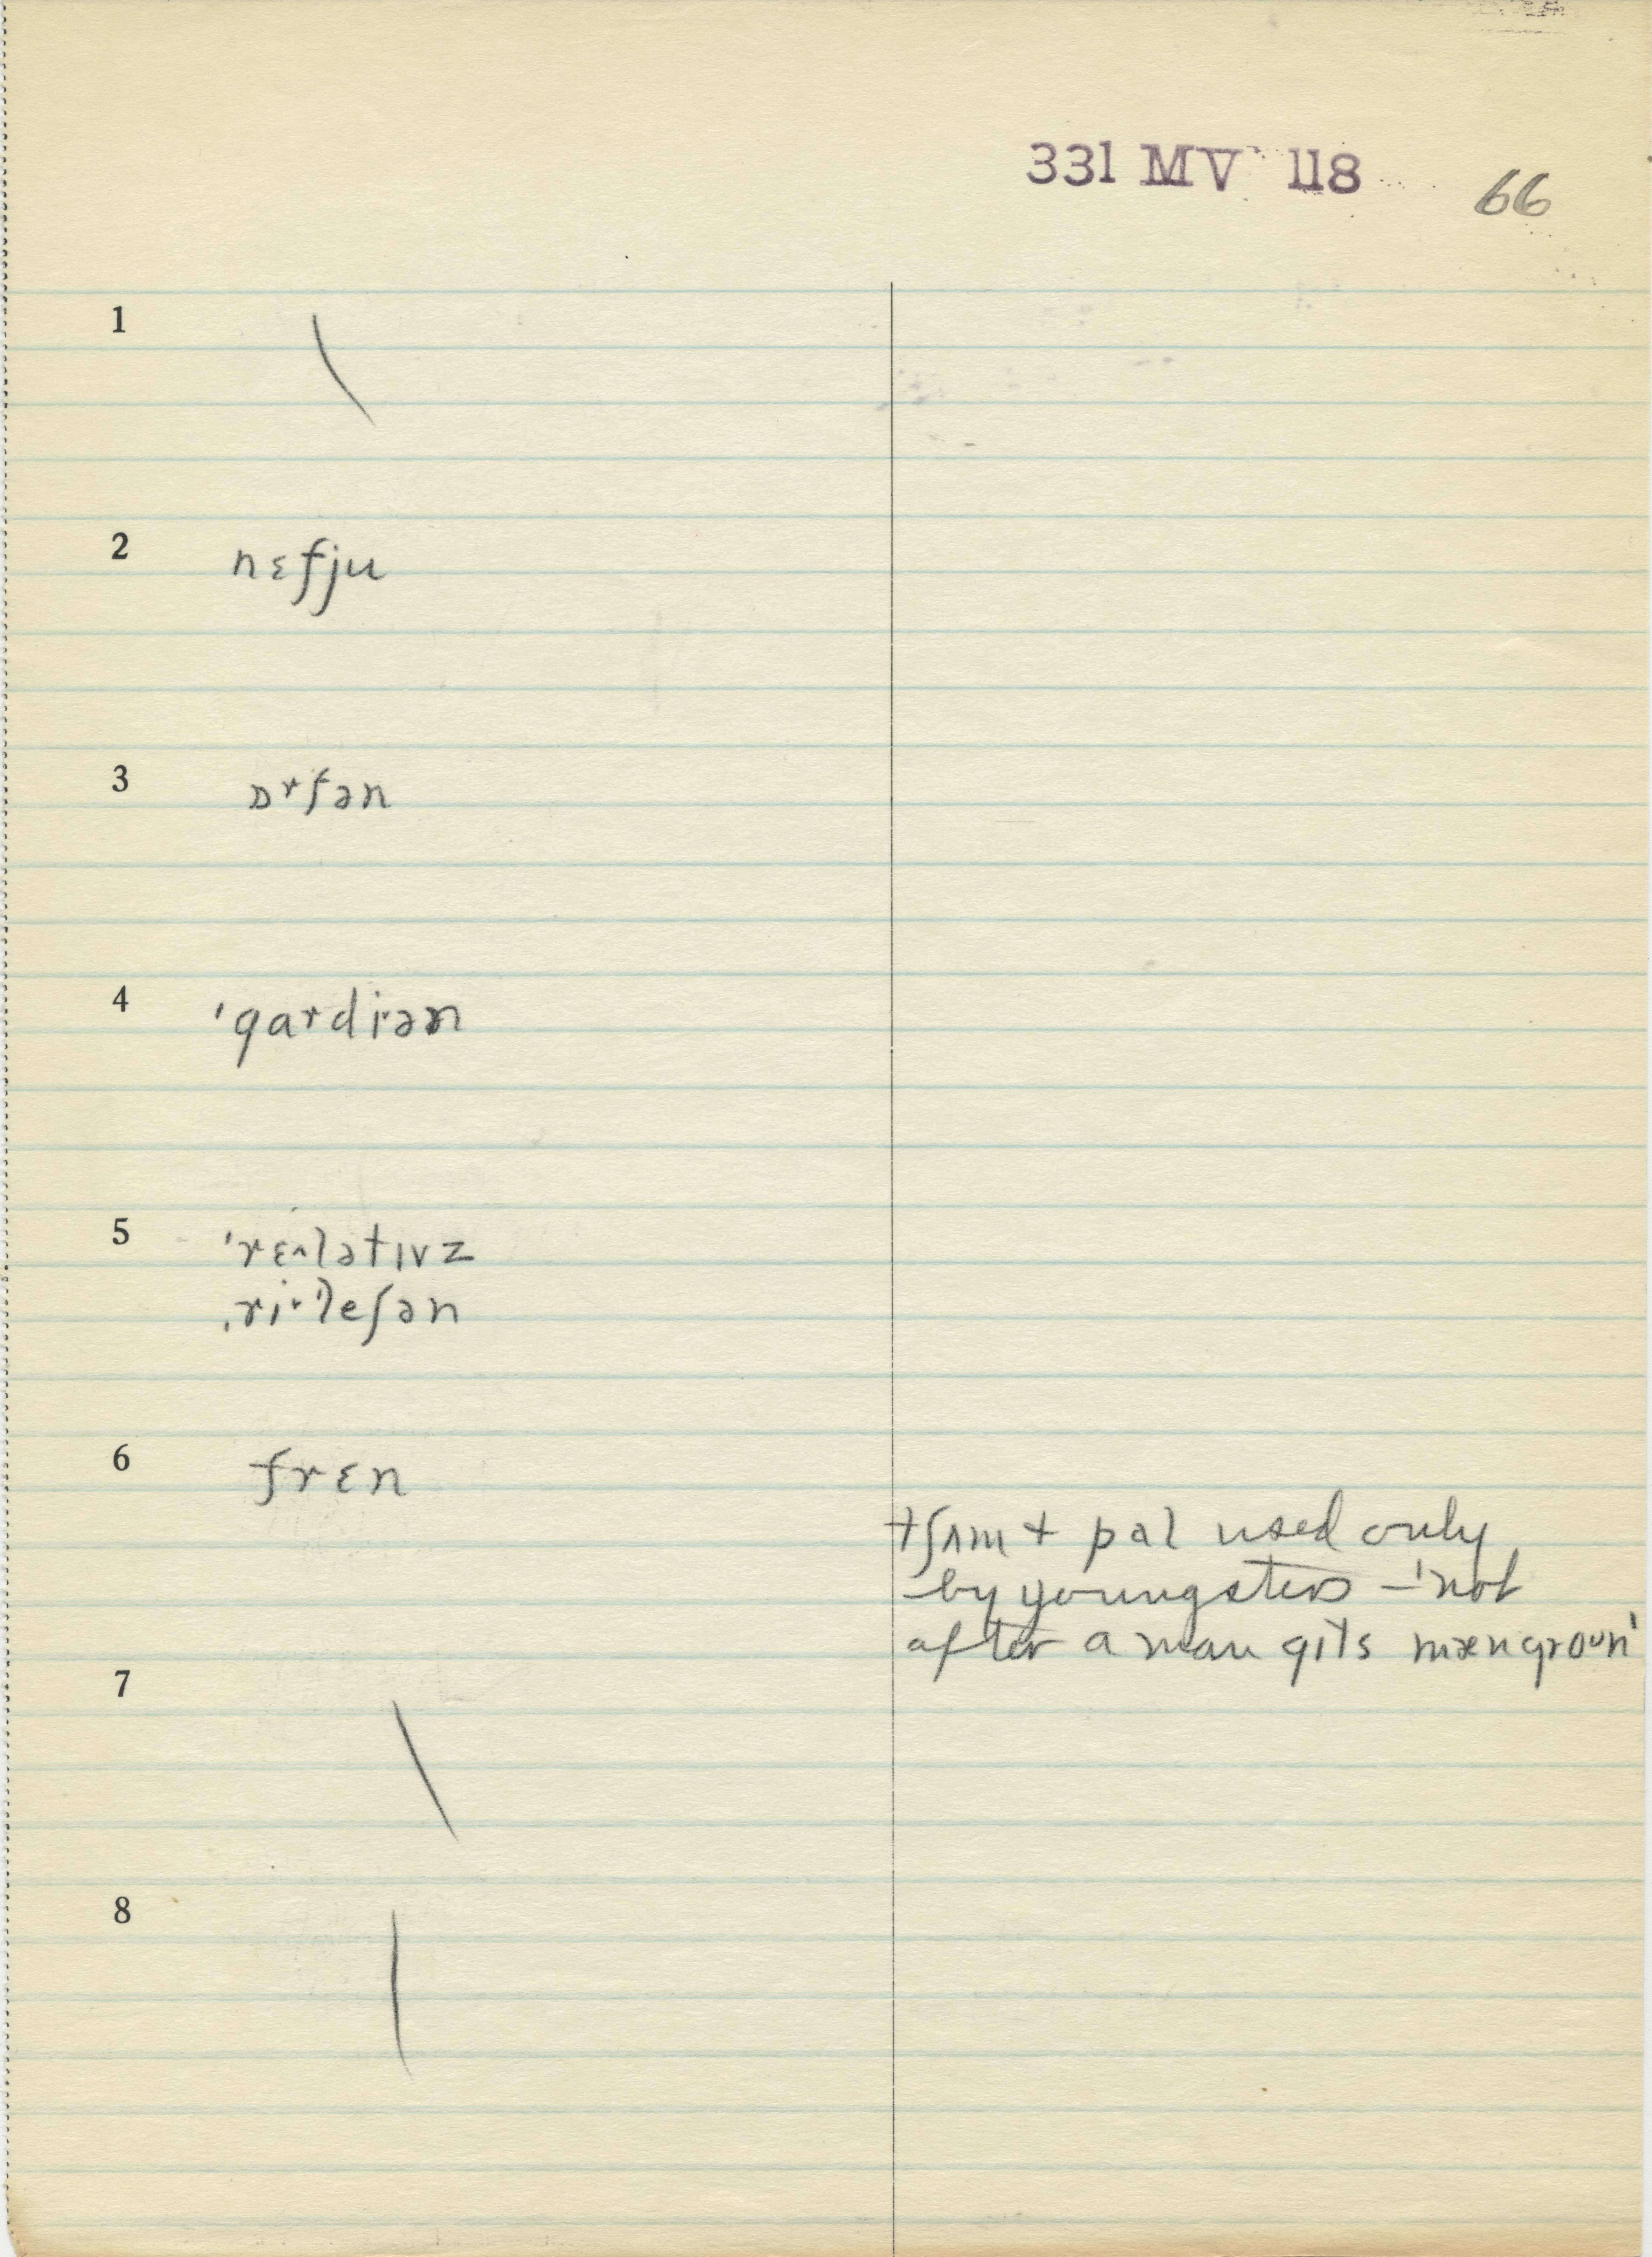 331 MV 118 66
1
2 nɛfju
3 ɒrfən
4 'gardiən
5 'rɛ^lətɪvz
ˌri·'leʃən
6 frɛn
tʃʌm + pal used only
by youngsters – 'not
after a man gɪts mængroʊn'
7
8